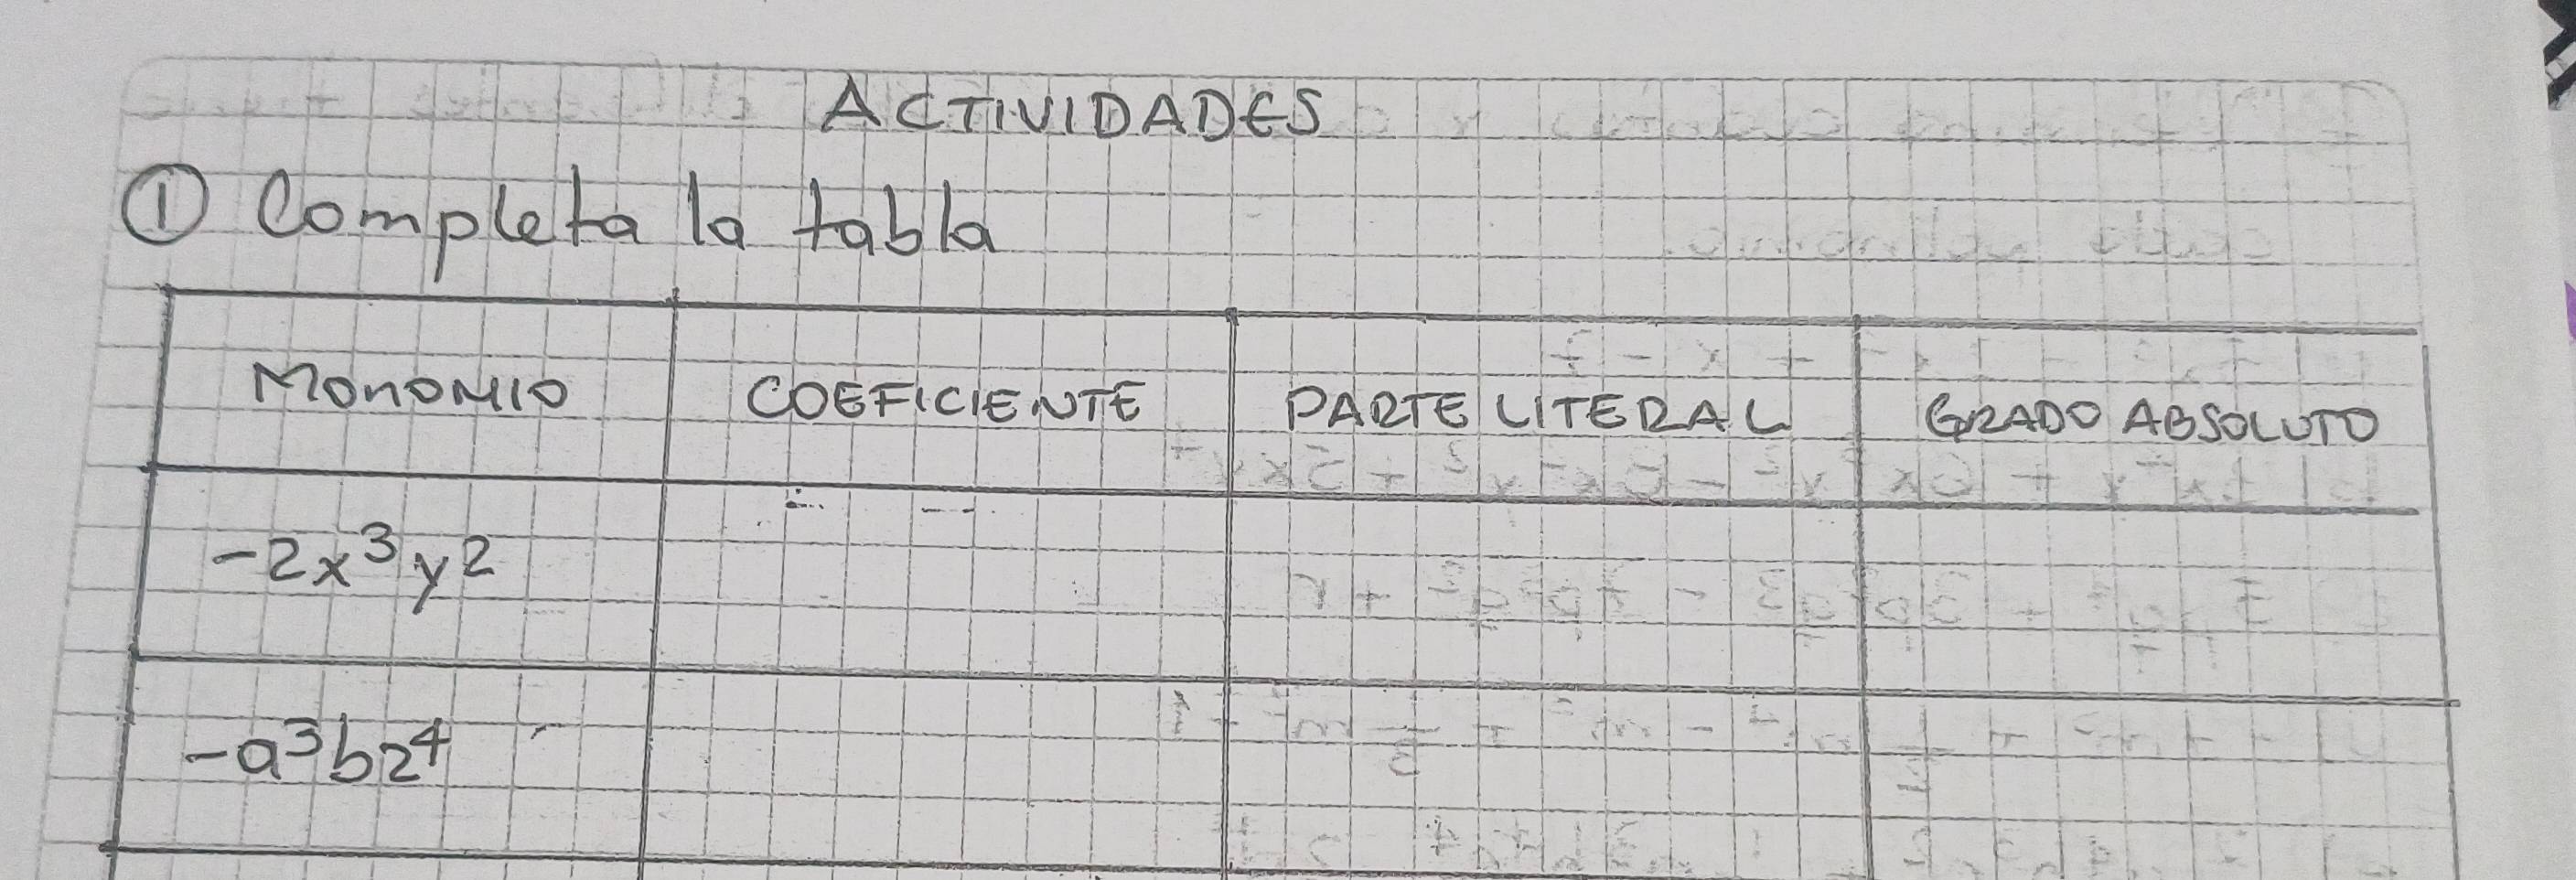 ACTIVIDADES
① Completa la tabla
MONOMIO COEFICIENTE PARTE LITERAL GRADO ABSOLUTO
-2x³y²
-a³bz⁴